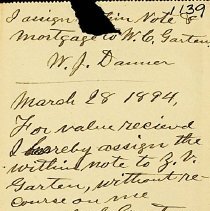 1139
I assign within Note &
mortgage to W. C. Garten,
W. J. Danner
March 28 1894,
For value recievd
I hereby assign the
within note to Z. V.
Garten, without re-
course on me